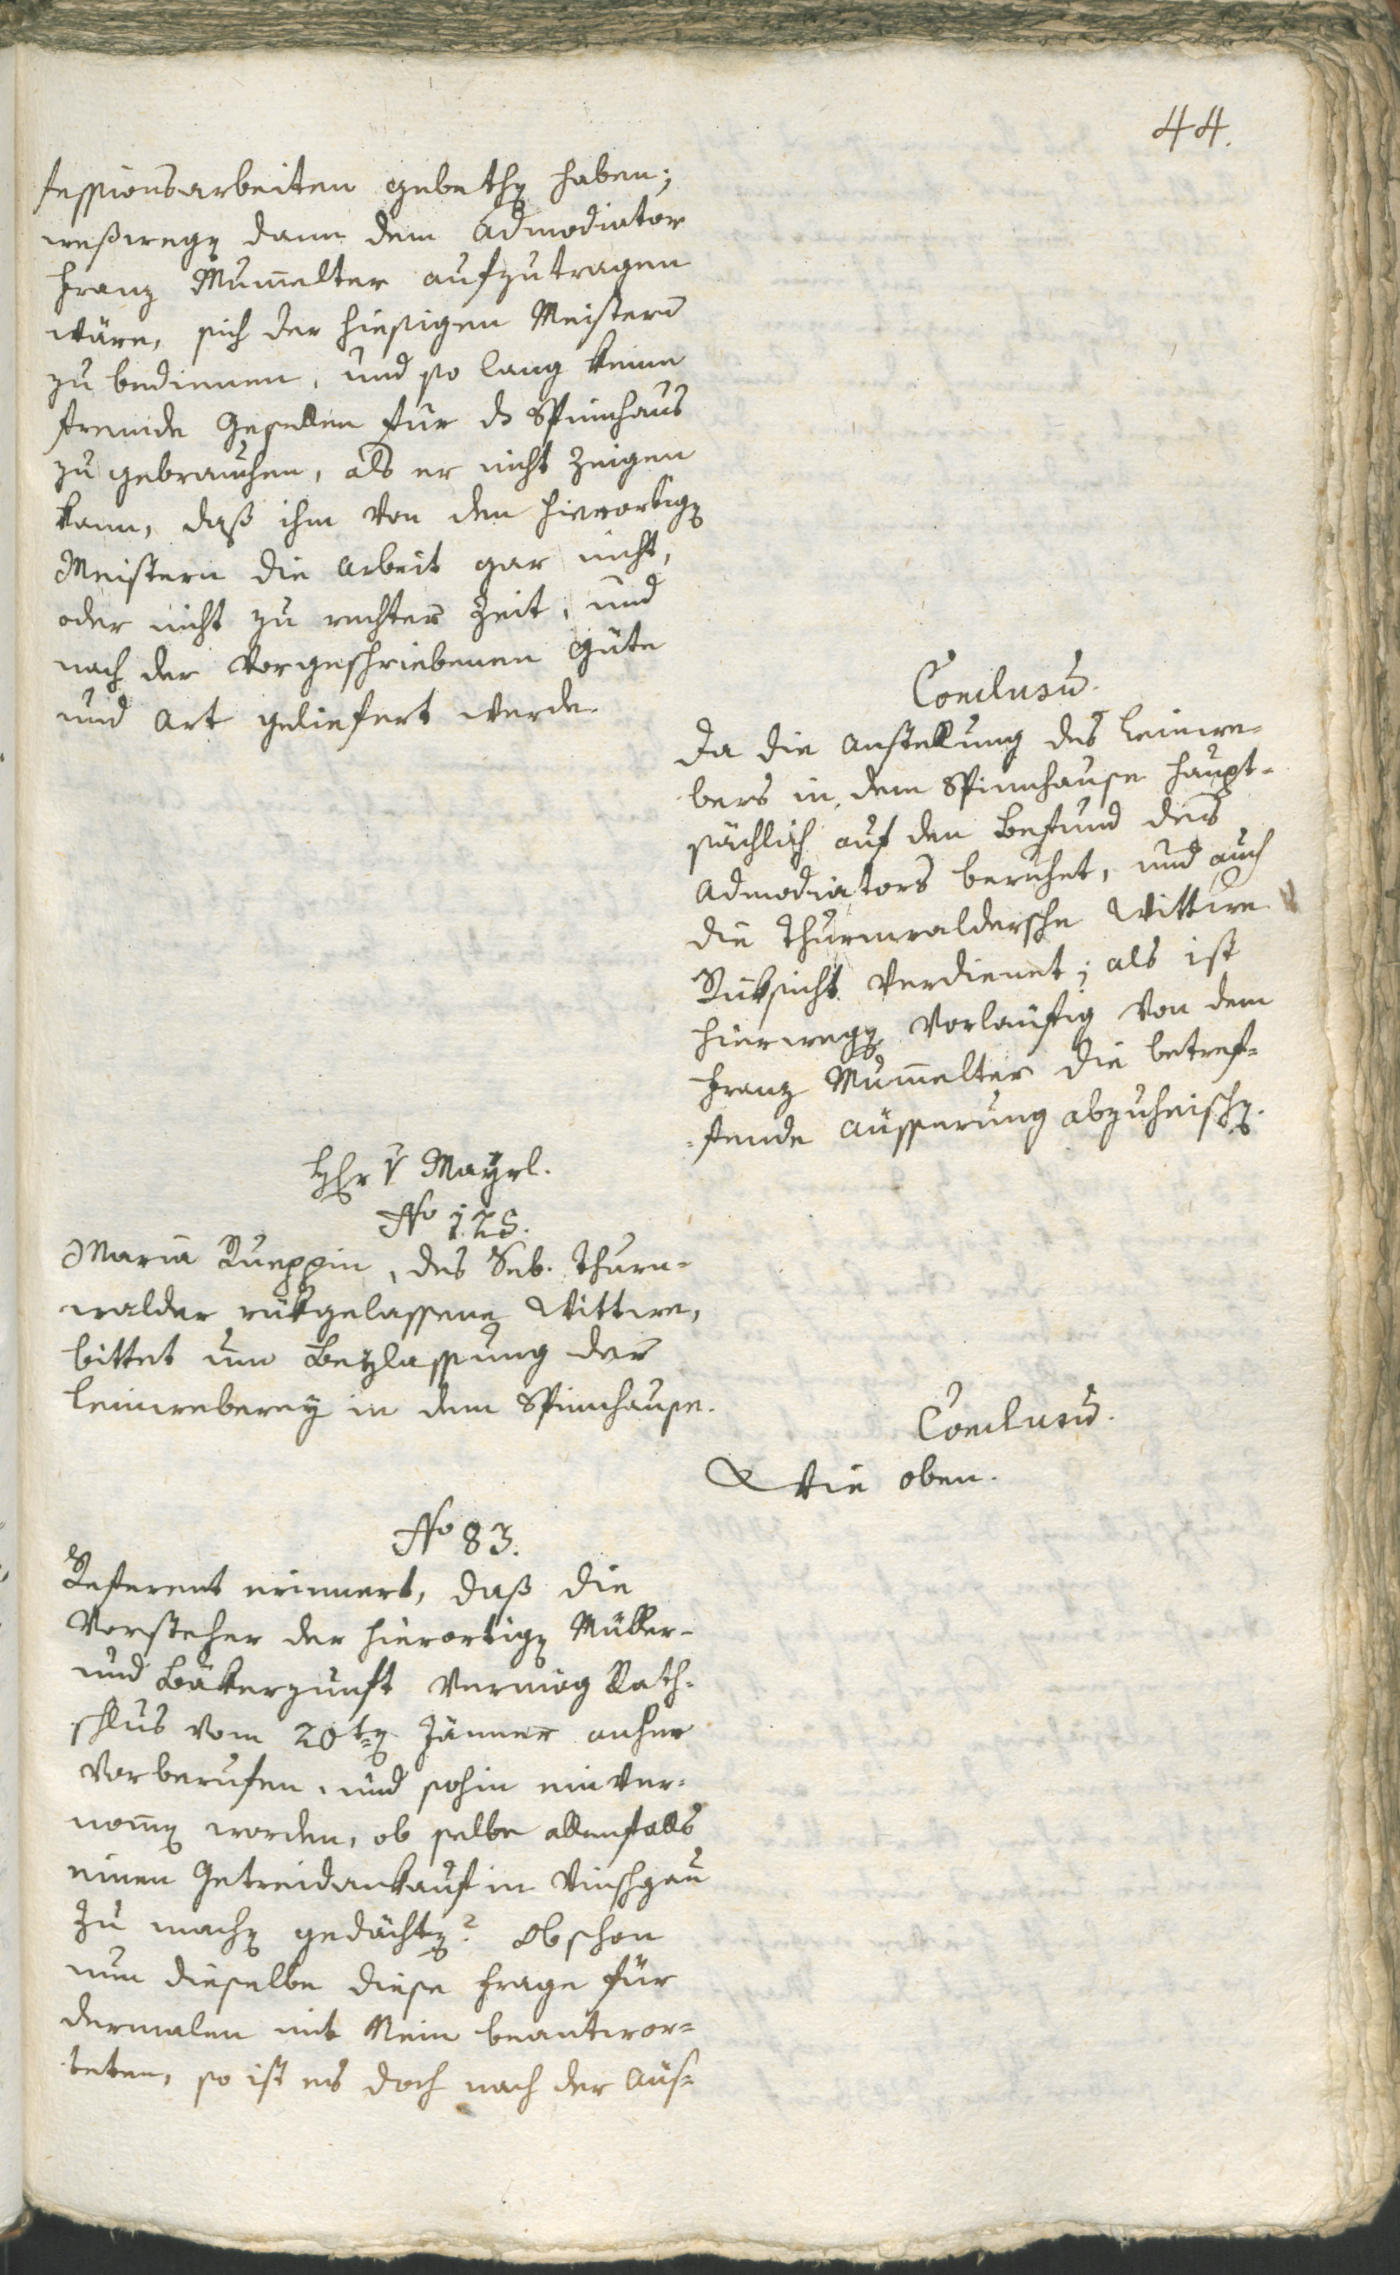 44.
fessionsarbeiten gebethen haben;
weßwegen dann dem Admodiator
Franz Mumelter aufzutragen
wäre, sich der hiesigen Meistern
zu bedienen, und so lang keine
fremde Gesellen für ds Spinnhaus
zu gebrauchen, als er nicht zeigen
kann, daß ihm von den hierortigen
Meistern die Arbeit gar nicht,
oder nicht zu rechter Zeit, und
nach der vorgeschriebenen Güte
und Art geliefert werde.
Conclusum.
Da die Anstellung des Leinwe-
bers in dem Spinnhause haupt-
sächlich auf den Befund des
Admodiators beruhet, und auch
die Thurnwaldersche Wittwe
Rüksicht verdienet; als ist
hierwegen vorläufig von dem
Franz Mumelter die betref-
fende Äusserung abzuheischen.
Hr v Mayrl.
No 125.
Maria Rueppin, des Seb. Thurn-
walder rükgelassene Wittwe,
bittet um Beylassung der
Leinweberey in dem Spinnhause.
Conclusum.
Wie oben.
No 83.
Referent erinnert, daß die
Vorsteher der hierortigen Müller-
und Bäkerzunft vermög Rath-
schlus vom 20ten Jänner anher
vorberufen, und sohin einver-
nomen worden, ob selbe allenfalls
einen Getreidankauf in Vinschgau
zu machen gedächten? Obschon
nun dieselbe diese Frage für
dermalen mit Nein beantwor-
teten, so ist es doch nach der Aus-